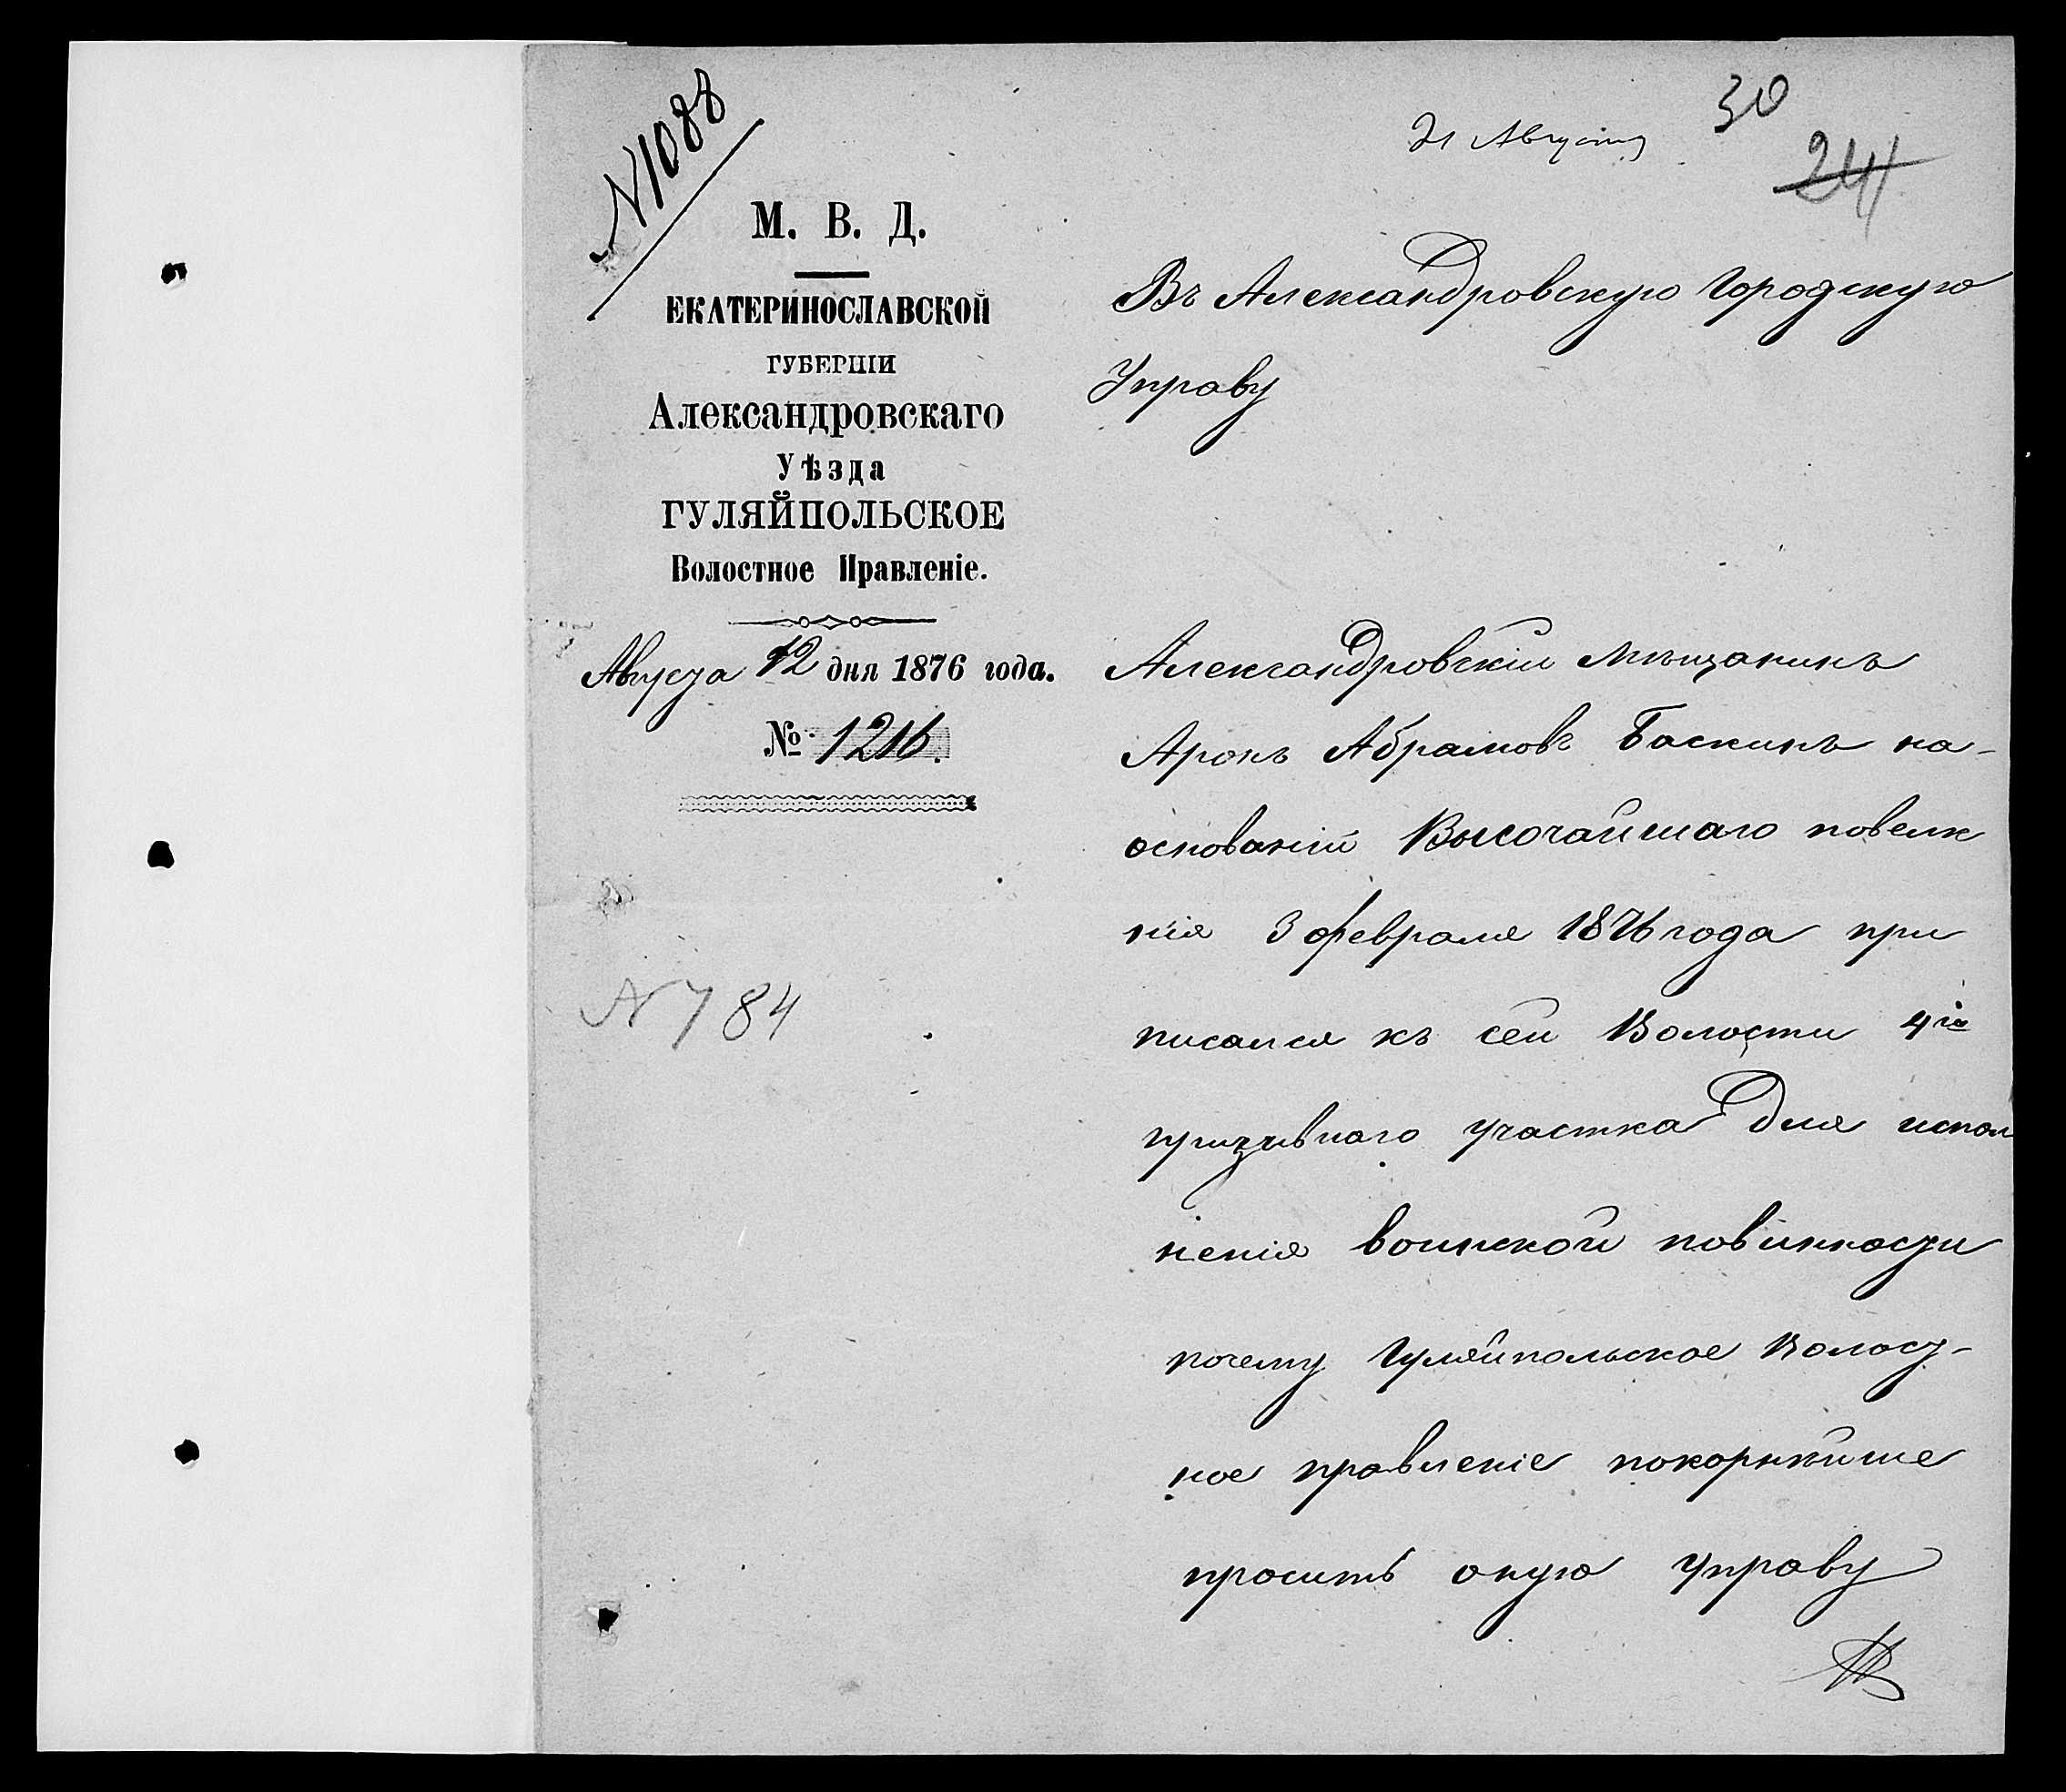 № 1088
21 Августа
30
24
М. В. Д.
ЕКАТЕРИНОСЛАВСКОЙ
ГУБЕРНІИ
Александровскаго
Уѣзда
ГУЛЯЙПОЛЬСКОЕ
Волостное Правленіе.
Августа 12 дня 1876 года.
№ 1216.
N 784
Въ Александровскую Городскую
Управу
Александровскій мѣщанинъ
Аронъ Абрамовъ Баскинъ на-
основаніи Высочайшаго повелѣ
нія 3 февраля 1876 года при
писался къ сей Волости 4го
призывнаго участка для испол
ненія воинской повинности
почему Гуляйпольское Волост-
ное правленіе покорнѣйше
проситъ оную Управу